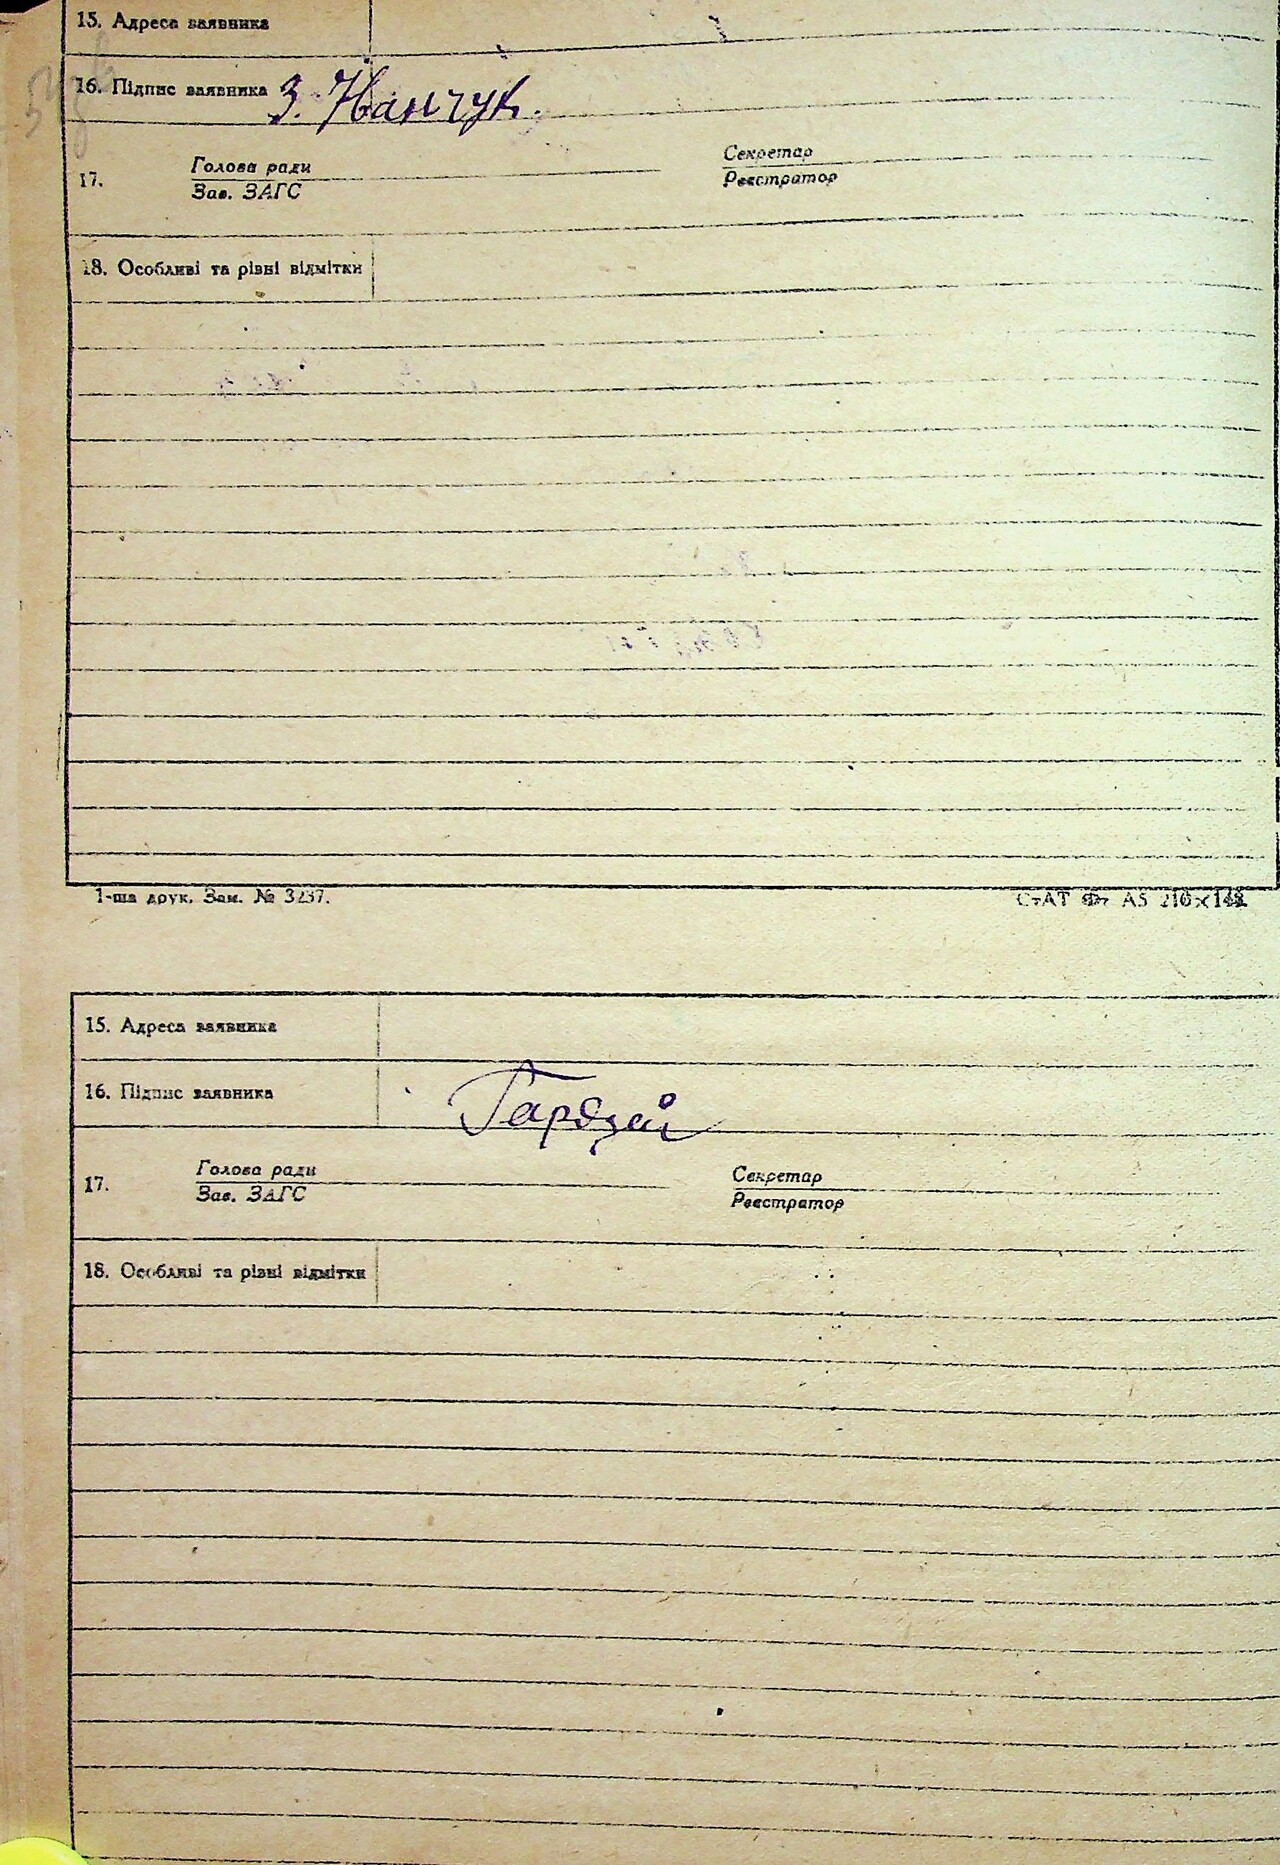 15. Адреса заявника
16. Підпис заявника З. Іванчук.
17. Голова ради Секретар
Зав. ЗАГС Реєстратор
18. Особливі та різні відмітки
1-ша друк. Зам. № 3237. СтАТ Фт А5 210×148.
15. Адреса заявника
16. Підпис заявника
17. Голова ради Секретар
Зав. ЗАГС Реєстратор
18. Особливі та різні відмітки